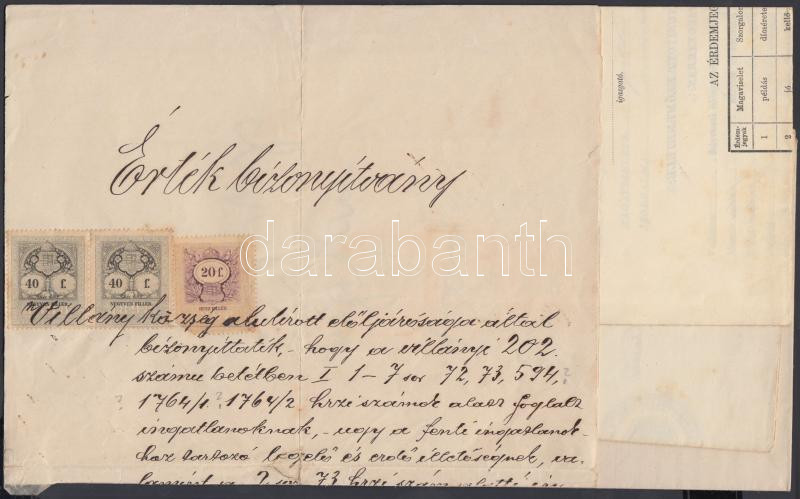 Érték bizonyítvány
40 f.
NEGYVEN FILLÉR
40 f.
NEGYVEN FILLÉR
20 f.
HUSZ FILLÉR
Villány község alulírott elöljárósága által
bizonyíttatik, hogy a villányi 202.
számu betétben I 1–7 sor 72, 73, 594,
1764/1. 1764/2 hrzi számok alatt foglalt
ingatlanoknak, – ugy a fenti ingatlanok-
hoz tartozó legelő és erdő illetőségnek, va-
lamint a 2 sor 73 hrzi szám alatti
igazgató.
AZ ÉRDEMJEG
Érdem-
jegyek
Magaviselet
Szorgalom
1
példás
dicsérete
2
jó
kellő
darabanth